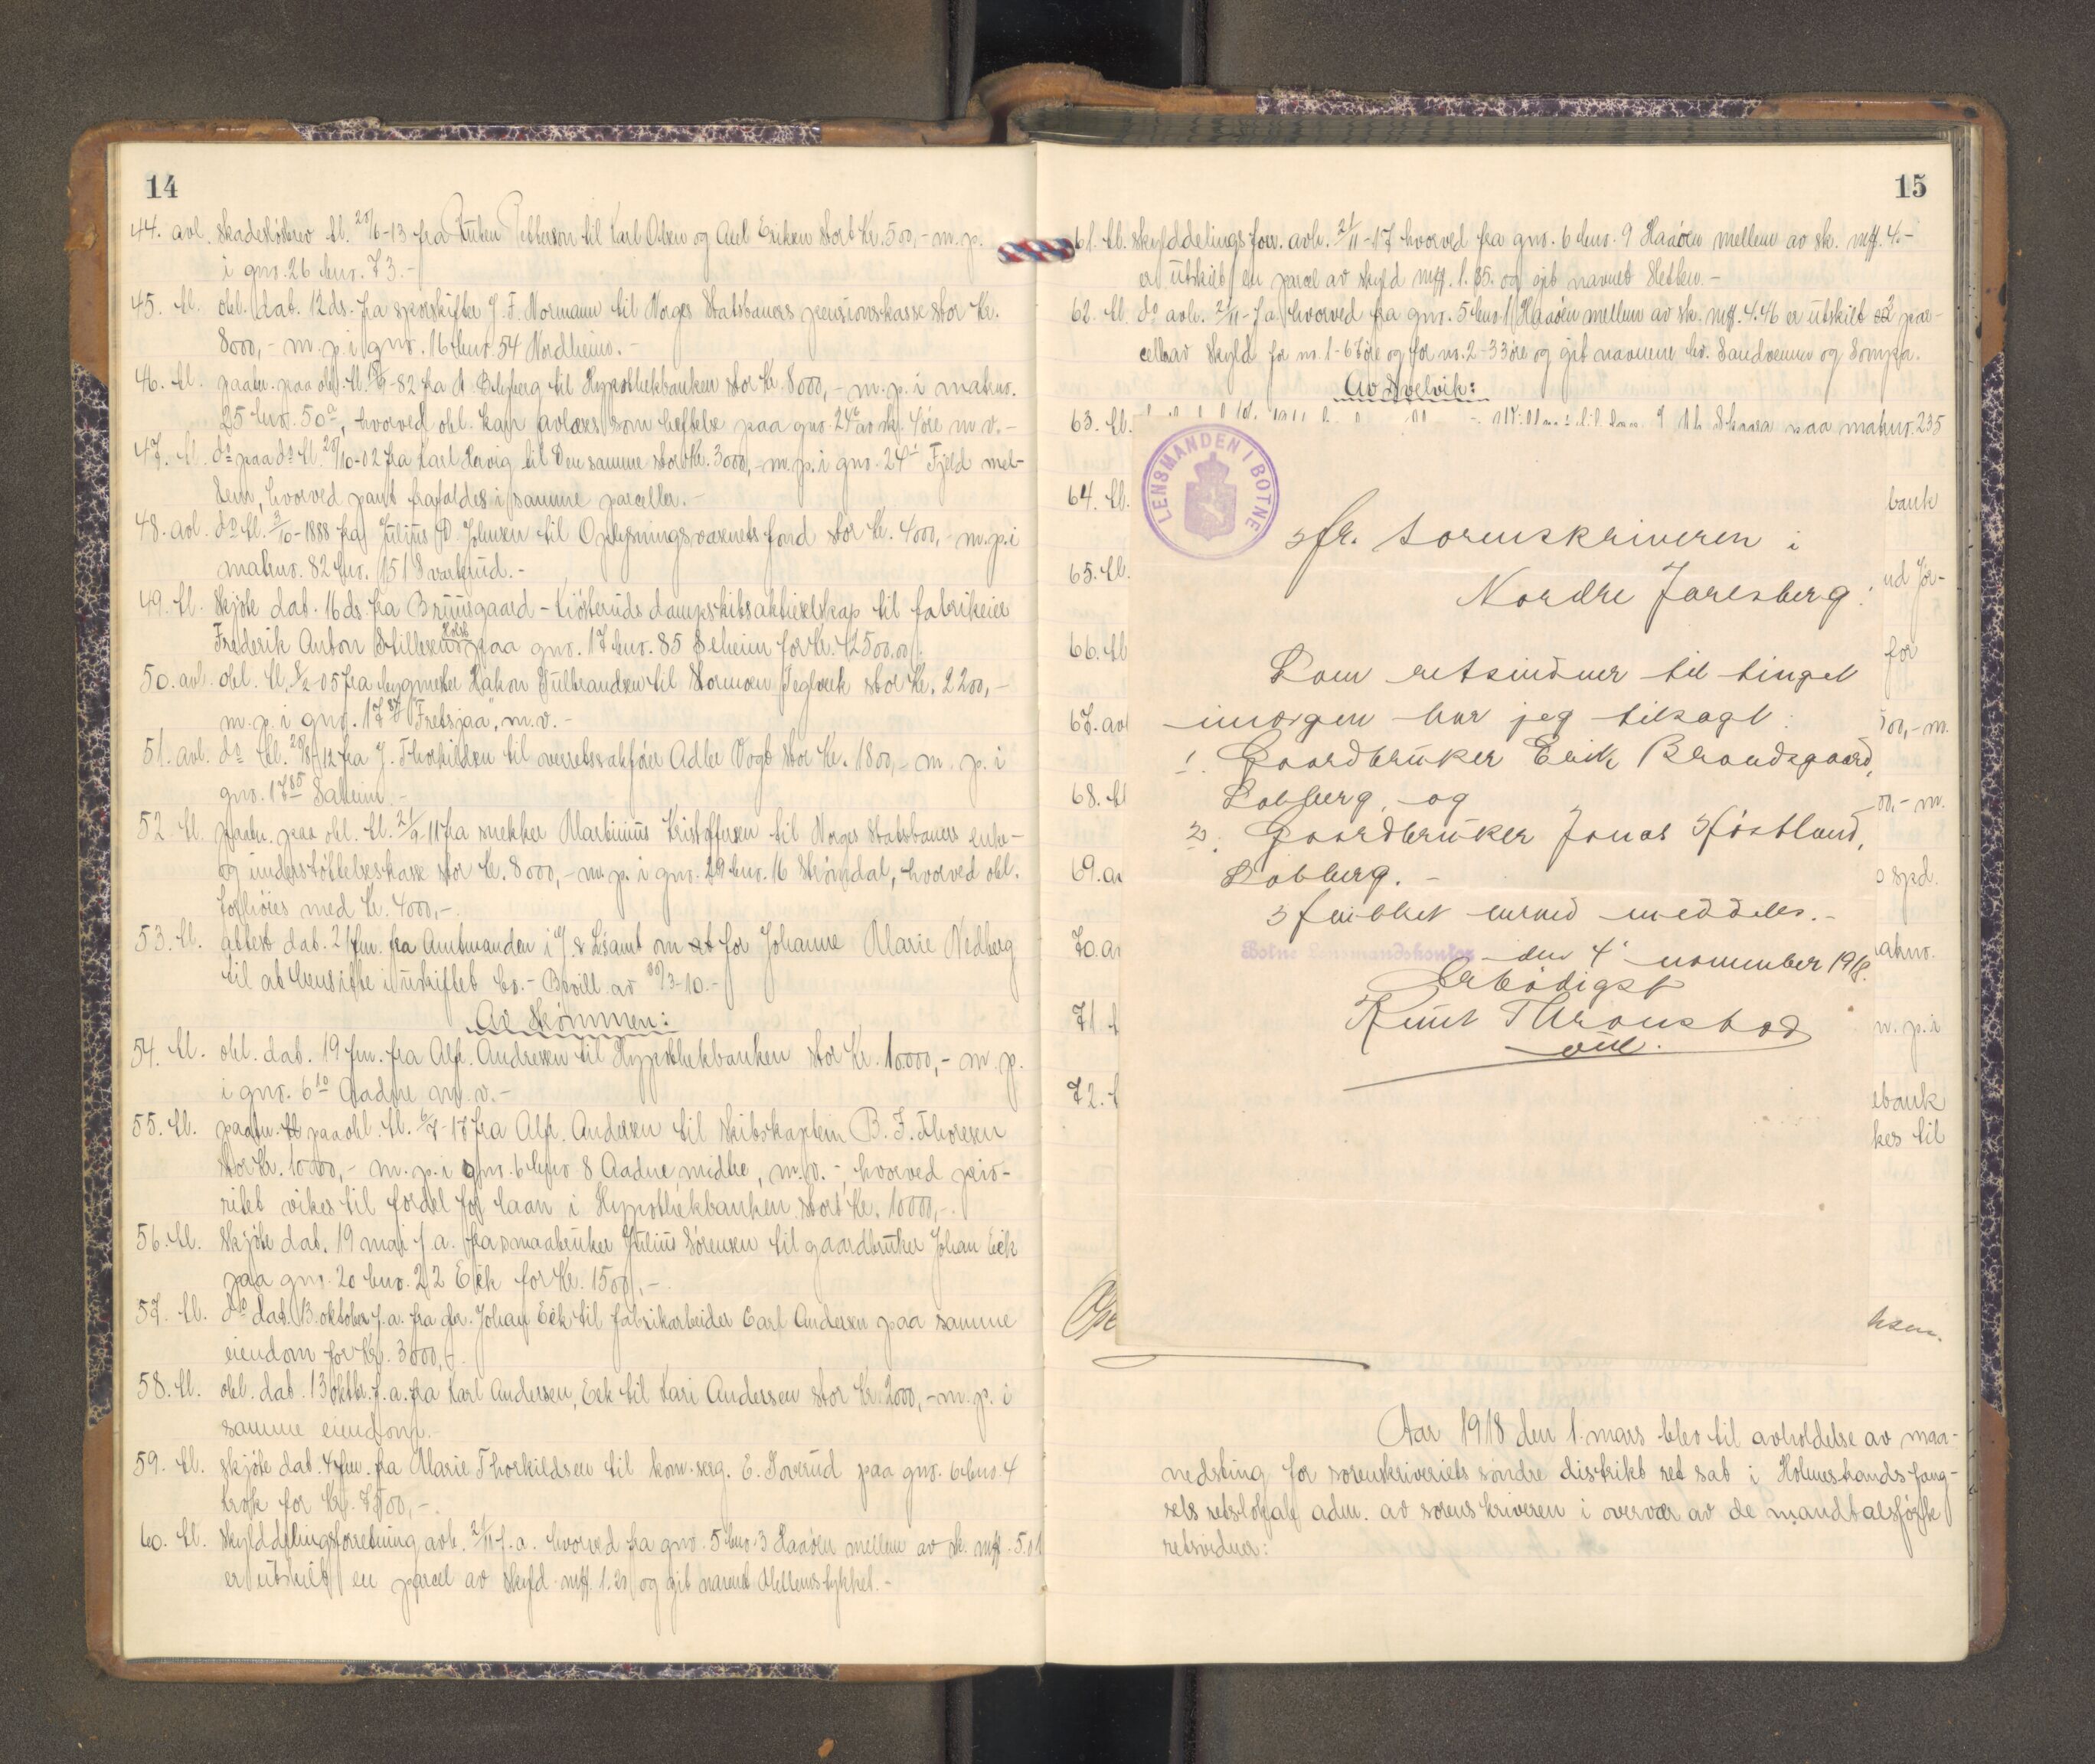 14
44. avl. skadesløsbrev tl. 28/6-13 fra Ruben Petterson til Karl Olsen og Axel Eriksen stort Kr. 500,- m. p.
i gno. 26 bno. 73.-
45. tl. obl. dat. 12 ds. fra sporskifter J. F. Normann til Norges Statsbaners pensionskasse stor Kr.
8000,- m. p. i gno. 16 bno. 54 Nordheim.-
46. tl. paatn. paa obl. tl. -82 fra til Hypothekbanken stor Kr. 8000,- m. p. i matno.
25 bno. 50a, hvorved obl. kan avløses som heftelse paa gno. 24 av sk. 4 øre m. v.-
47. tl. do paa do tl. 28/10-02 fra Karl Hervig til Den samme stor Kr. 3000,- m. p. i gno. 24 Fjeld mel-
lem, hvorved pant frafaldes i samme parceller.-
48. avl. do tl. 3/10-1888 fra Julius D. Johnsen til Oplysningsvæsenets fond stor Kr. 4000,- m. p. i
matno. 82 bno. 151 Svarterud.-
49. tl. Skjøte dat. 16 ds. fra Bruusgaard-Kiøsteruds dampskibsaktieselskap til fabrikeier
Frederik Anton Holst Stillesen paa gno. 17 bno. 85 Solheim for Kr. 42500.00.
50. avl. obl. tl. 8/2-05 fra bygmester Hakon Gulbrandsen til Stormoen Teglverk stor Kr. 2200,-
m. p. i gno. 17 "Fretsjaa", m. v.-
51. avl. do tl. 28/8-12 fra J. Thorkildsen til overretssakfører Adler Vogt stor Kr. 1800,- m. p. i
gno. 17 85 Solheim.-
52 tl. paatn. paa obl. tl. 21/9-11 fra snekker Martinius Kristoffersen til Norges Statsbaners enke-
og understøttelseskasse stor Kr. 8000,- m. p. i gno. 29 bno. 16 Strømdal, hvorved obl.
forhøies med Kr. 4000,-.
53. tl. attest dat. 21 fm. fra Amtmanden i J. & L. amt om at for Johanne Marie Nedberg
til at hensitte i uskiftet bo.- Bevill. av 30/3-10.-
Av Skommen:
54. tl. obl. dat. 19 fm. fra Alf. Andresen til Hypothekbanken stor Kr. 10.000,- m. p.
i gno. 6 10 Aadne m. v.-
55. tl. paatn. paa obl. tl. 6/7-17 fra Alf. Andersen til skibskaptein B. F. Thoresen
stor Kr. 10.000,- m. p. i gno. 6 bno 8 Aadne midtre, m. v.-, hvorved prio-
ritet vikes til fordel for laan i Hypothekbanken stort Kr. 10000,-.
56. tl. Skjøte dat. 19 mai f. a. fra smaabruker Julius Sørensen til gaardbruker Johan Eck
paa gno. 20 bno. 22 Eck for Kr. 1500,-.
57. tl. do dat. 13 oktober f. a. fra gbr. Johan Eck til fabrikarbeider Carl Andersen paa samme
eiendom for Kr. 3000,-.
58. tl. obl. dat. 13 oktbr. f. a. fra Karl Andersen, Eck til Kari Andersen stor Kr. 2000,- m. p. i
samme eiendom.-
59. tl. skjøte dat. 4 fm. fra Marie Thorkildsen til kom. serg. E. Soverud paa gno. 6 bno. 4
Krok for Kr. 7500,-.
60. tl. Skylddelingsforretning avh. 2/11 f. a. hvorved fra gno. 5 bno. 3 Haaøen mellem av sk. mk. 5.01
er utskilt en parcel av skyld mk. 1.20 og git navnet Mellemstykket.-
15
61. tl. skylddelings forr. avh. 2/11-17 hvorved fra gno. 6 bno. 9 Haaøen mellem av sk. mk. 4.-
er utskilt en parcel av skyld mk. 1.85. og git navnet Sletten.-
62. tl. do avh. 2/11-f. a. hvorved fra gno. 5 bno 1 Haaøen mellem av sk. mk. 4.46 er utskilt 2 par-
celler av skyld for nr. 1-67 øre og for nr. 2-33 øre og git navnene hv. Sandvennen og Sompa.
Av Svelvik:
63. tl. paa matno. 235
64. tl. bank
65. tl. ud Jør-
66. tl for
67. avl 500,- m.
68. tl 00,- m.
69. av o spd.
70. av atno.
71. t m. p. i
72. t ebank
kes til
Ope hsen.
LENSMANDEN I BOTNE
Hr. Sorenskriveren i
Nordre Jarlsberg.
Som retsvidner til tinget
imorgen har jeg tilsagt:
1. Gaardbruker Erik Brandsgaard,
Solberg, og
2. Gaardbruker Jonas Høstland,
Solberg.-
Hvilket herved meddeles.-
Botne Lensmandskontor den 4' november 1918.
Ærbødigst
Knut Thronstad
Aar 1918 den 1. mars blev til avholdelse av maa-
nedsting for sorenskriveriets søndre distrikt ret sat i Holmestrands fæng-
sels retslokale adm. av sorenskriveren i overvær av de mandtalsførte
retsvidner: